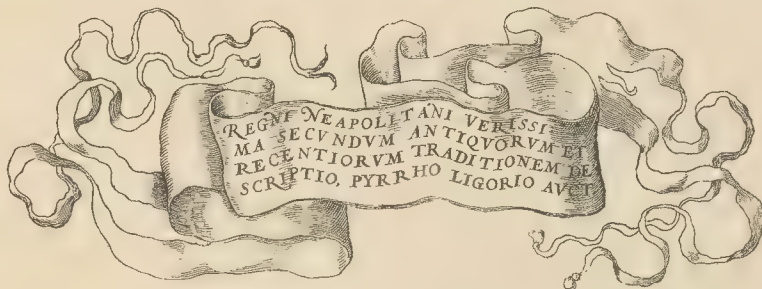 REGNI NEAPOLITANI VERISSI:
MA SECVNDVM ANTIQVORVM ET
RECENTIORVM TRADITIONEM DE
SCRIPTIO, PYRRHO LIGORIO AVCT